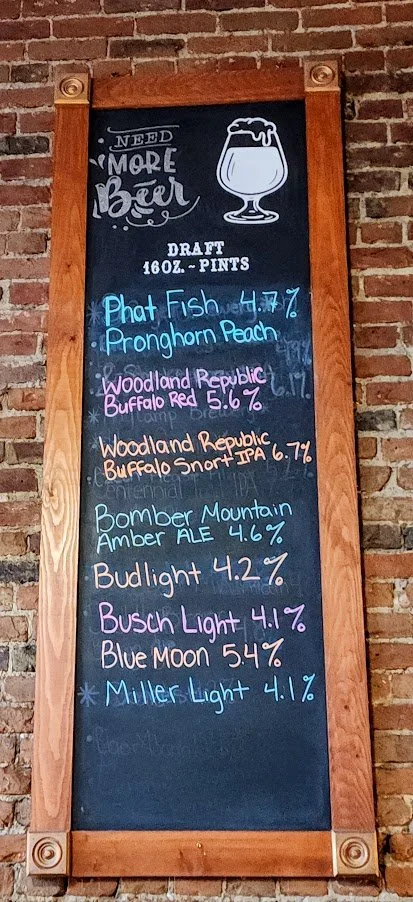 NEED
MORE
Beer
DRAFT
16OZ.~PINTS
Phat Fish 4.7%
Pronghorn Peach
Woodland Republic
Buffalo Red 5.6%
Woodland Republic
Buffalo Snort IPA 6.7%
Bomber Mountain
Amber ALE 4.6%
Budlight 4.2%
Busch Light 4.1%
Blue Moon 5.4%
Miller Light 4.1%